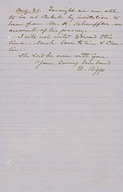 Aug. 31. To-night we are all
to be at Bebek by invitation to
hear from Mr. H. Schauffler an
account of his journey.
I will not write to Broosa this
time. Much love to him & Em-
The Lord be ever with you.
Your loving husband
E. Riggs